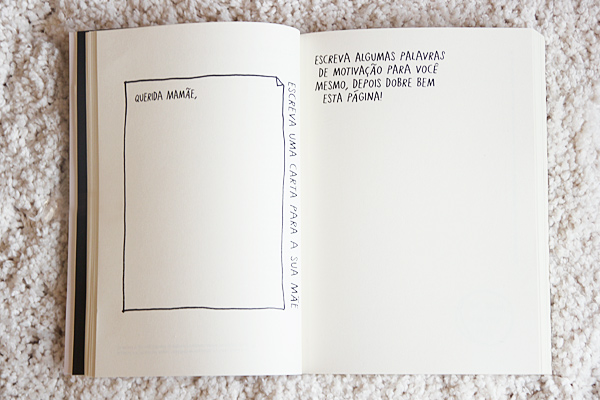 QUERIDA MAMÃE,
ESCREVA UMA CARTA PARA A SUA MÃE
ESCREVA ALGUMAS PALAVRAS
DE MOTIVAÇÃO PARA VOCÊ
MESMO, DEPOIS DOBRE BEM
ESTA PÁGINA!